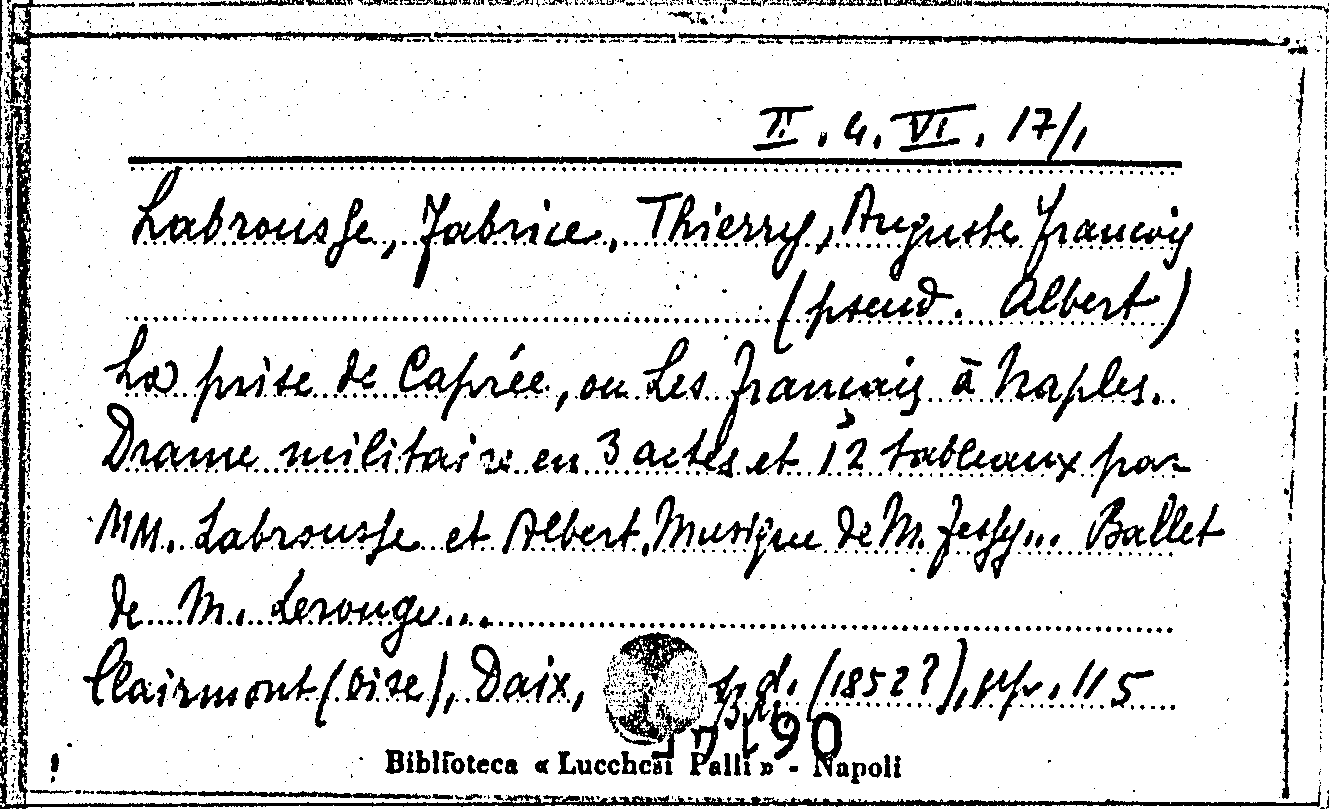 II. 4. VI. 17/1
Labrousse, Fabrice, Thierry, Auguste François
(pseud. Albert)
La prise de Caprée, ou Les français à Naples.
Drame militaire en 3 actes et 12 tableaux par
MM. Labrousse et Albert. Musique de M. Fessy... Ballet
de M. Lerouge...
Clairmont (Oise), Daix, s.d. (1852?), pp. 115
90
Biblioteca « Lucchesi Palli » - Napoli